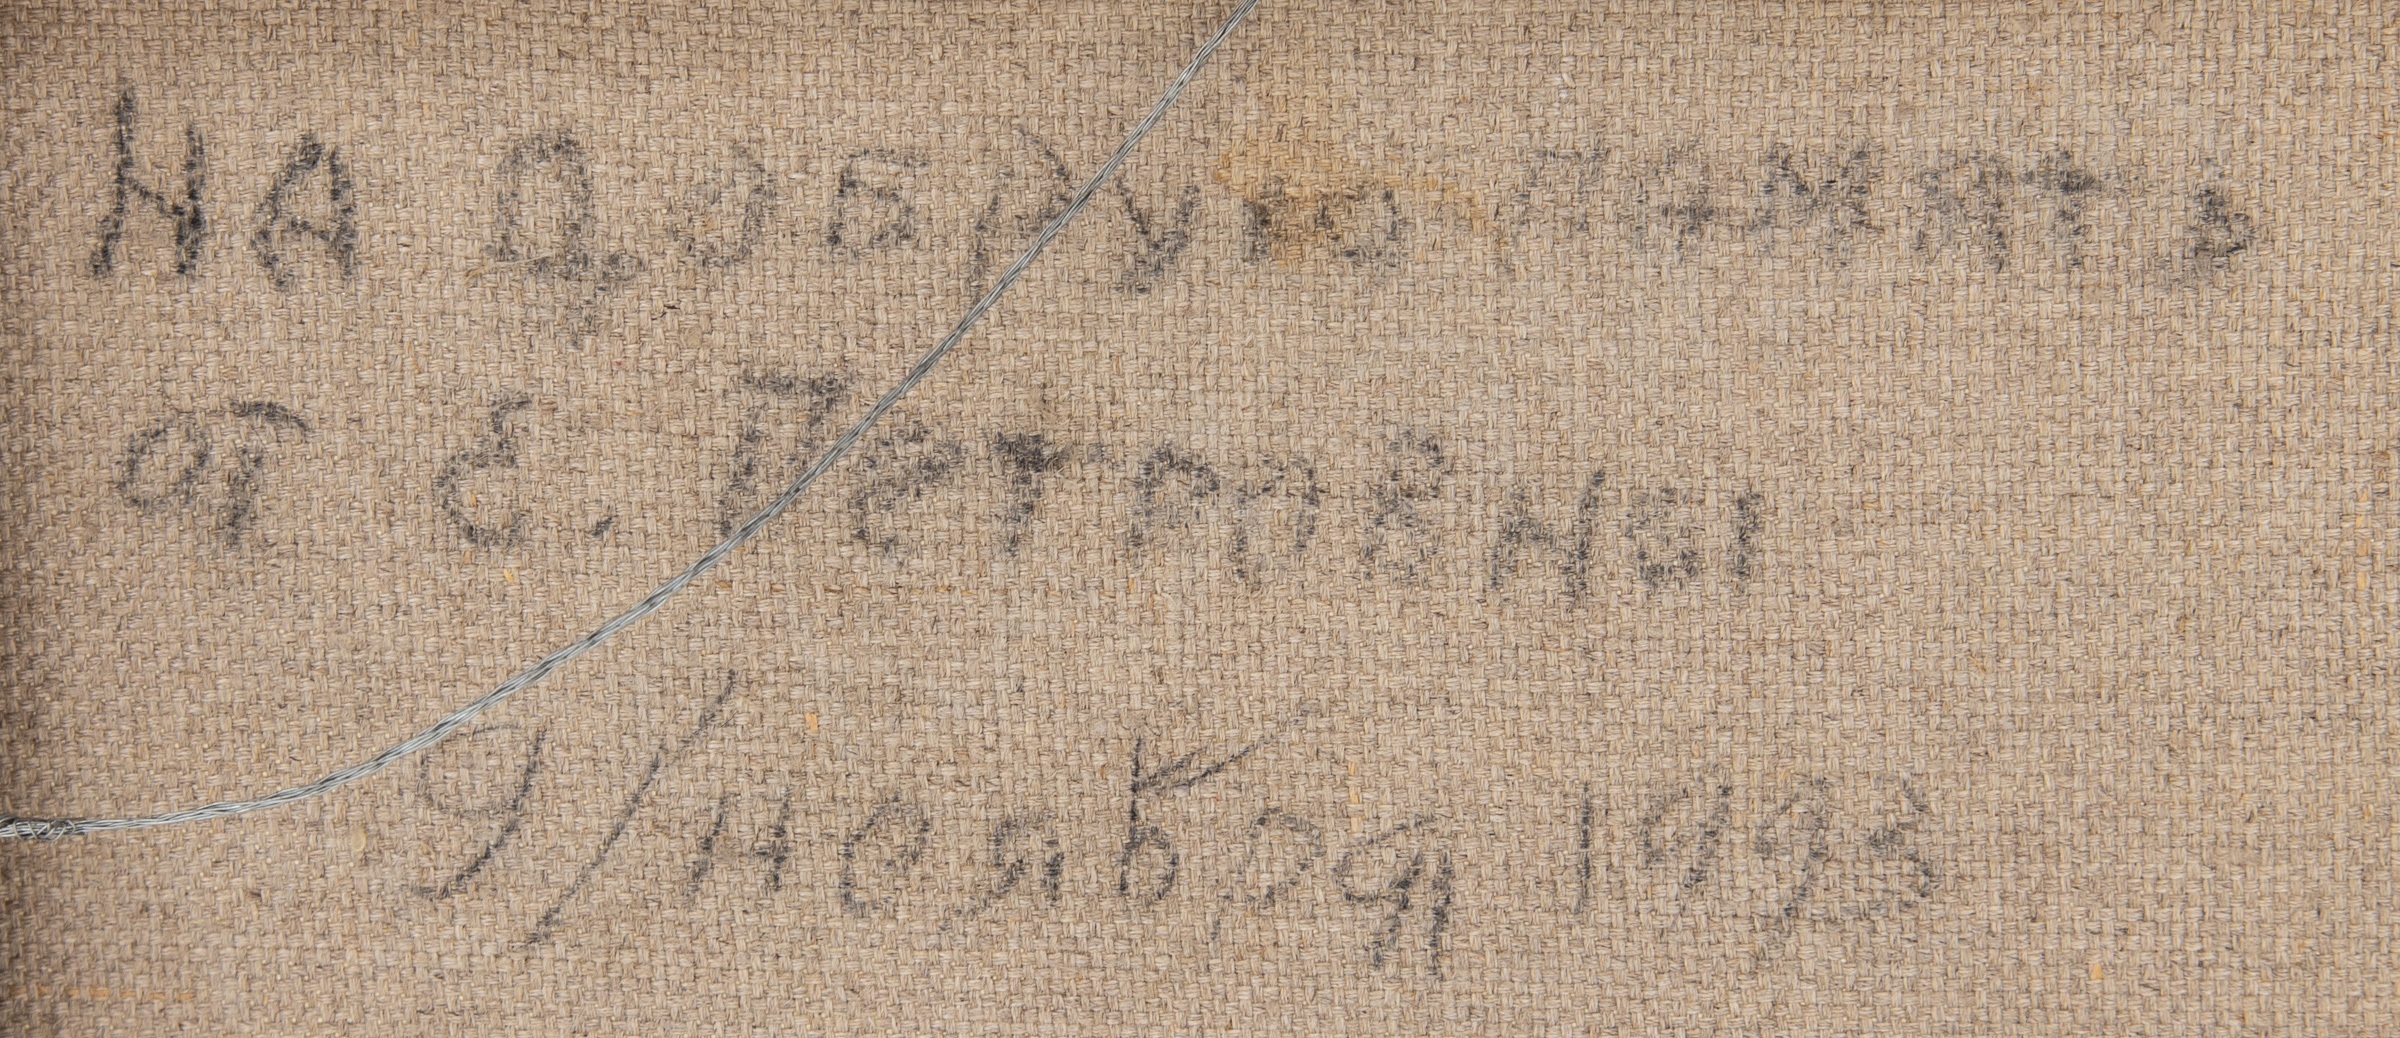 НА ДОБРУЮ ПАМЯТЬ
от Е. Гетманы
9/ноября 1993